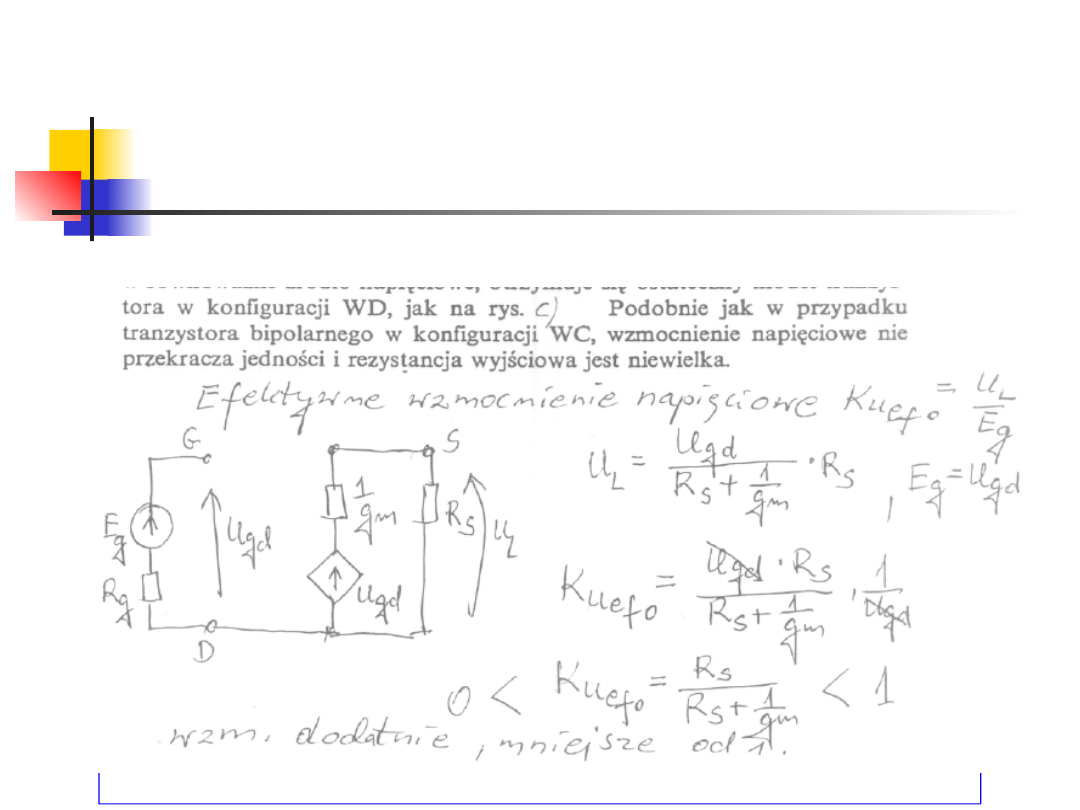 tora w konfiguracji WD, jak na rys. c) Podobnie jak w przypadku
tranzystora bipolarnego w konfiguracji WC, wzmocnienie napięciowe nie
przekracza jedności i rezystancja wyjściowa jest niewielka.
Efektywne wzmocnienie napięciowe Kuefo = UL / Eg
G
S
UL = Ugd / (Rs + 1/gm) · Rs , Eg = Ugd
1/gm
Rs
UL
Eg
Ugd
Rg
Ugd
D
Kuefo = Ugd · Rs / (Rs + 1/gm) · 1/Ugd
0 < Kuefo = Rs / (Rs + 1/gm) < 1
wzm. dodatnie, mniejsze od 1.